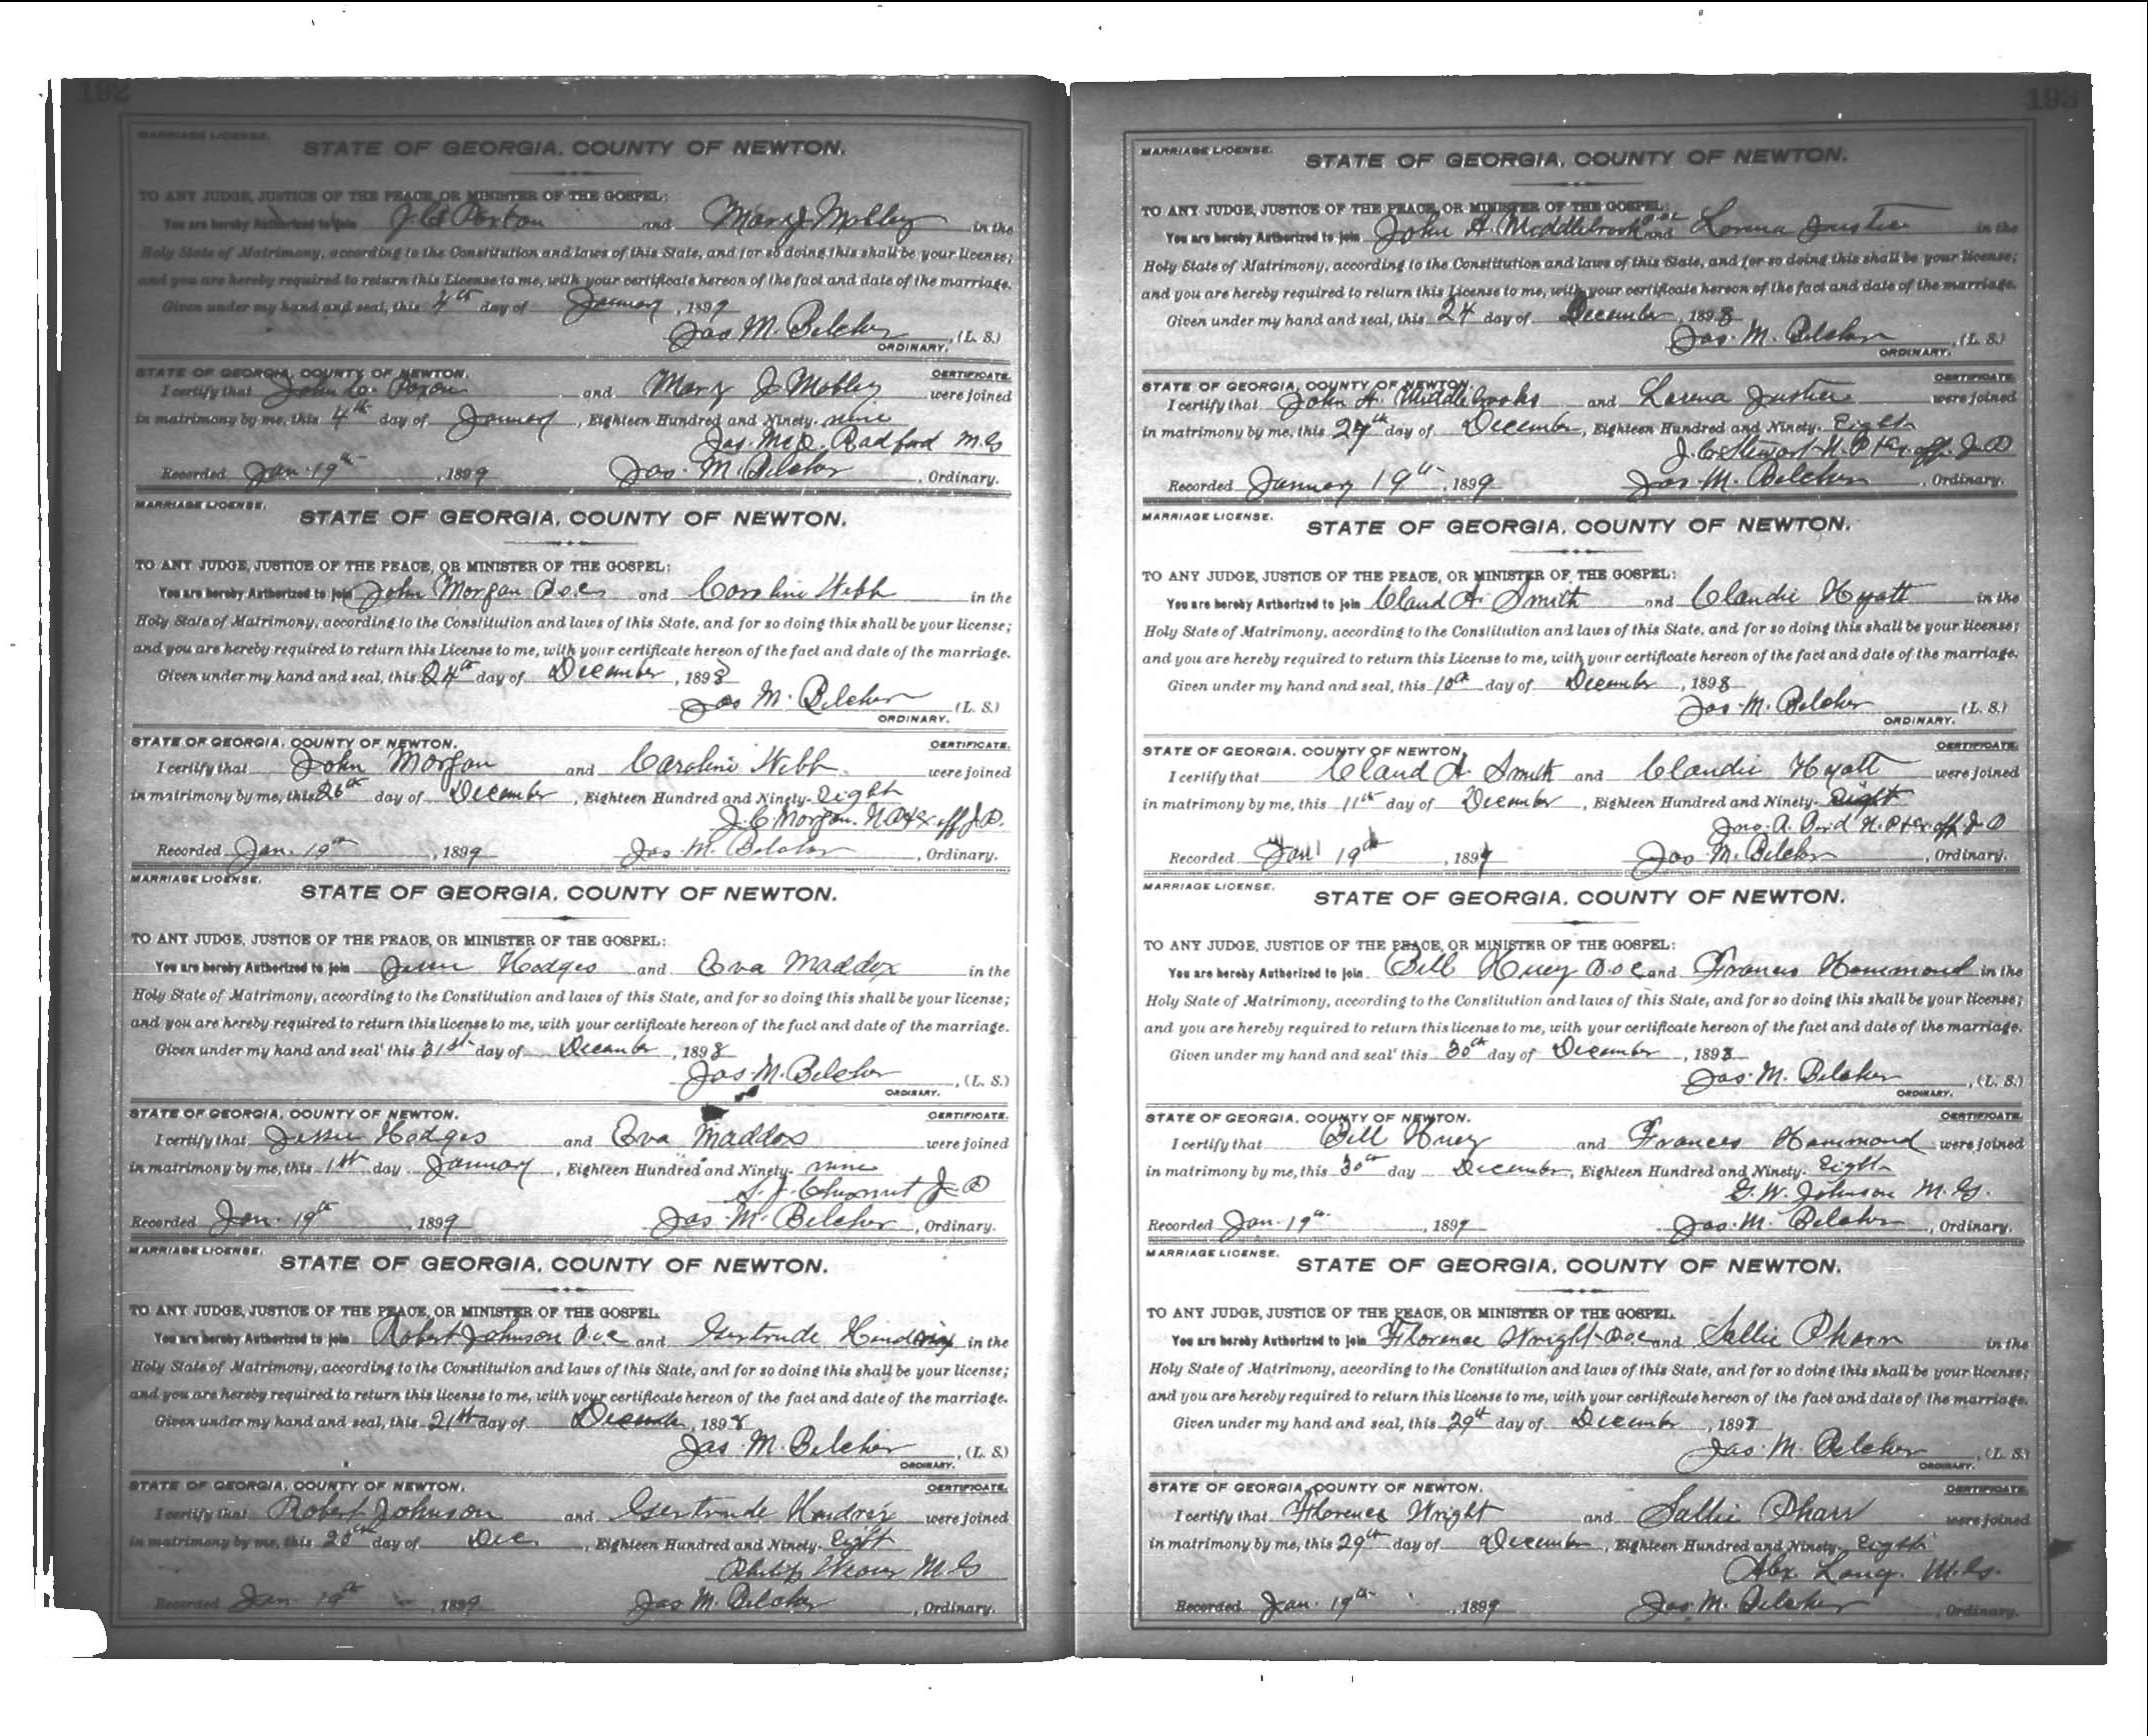 192
MARRIAGE LICENSE.
STATE OF GEORGIA, COUNTY OF NEWTON.
TO ANY JUDGE, JUSTICE OF THE PEACE, OR MINISTER OF THE GOSPEL:
You are hereby Authorized to join J. C. and Mary J Mobley in the
Holy State of Matrimony, according to the Constitution and laws of this State, and for so doing this shall be your license;
and you are hereby required to return this License to me, with your certificate hereon of the fact and date of the marriage.
Given under my hand and seal, this 4th day of January, 1899
Jas M. Belcher, (L. S.)
ORDINARY.
STATE OF GEORGIA, COUNTY OF NEWTON. CERTIFICATE.
I certify that John C. and Mary J Mobley were joined
in matrimony by me, this 4th day of January, Eighteen Hundred and Ninety- nine
Jas. McD. Radford M.G
Recorded Jan. 19th, 1899 Jas. M. Belcher, Ordinary.
MARRIAGE LICENSE.
STATE OF GEORGIA, COUNTY OF NEWTON.
TO ANY JUDGE, JUSTICE OF THE PEACE, OR MINISTER OF THE GOSPEL:
You are hereby Authorized to join John Morgan and Caroline Webb in the
Holy State of Matrimony, according to the Constitution and laws of this State, and for so doing this shall be your license;
and you are hereby required to return this License to me, with your certificate hereon of the fact and date of the marriage.
Given under my hand and seal, this 24th day of December, 1898
Jas M. Belcher (L. S.)
ORDINARY.
STATE OF GEORGIA, COUNTY OF NEWTON. CERTIFICATE.
I certify that John Morgan and Caroline Webb were joined
in matrimony by me, this 26th day of December, Eighteen Hundred and Ninety- Eight
J. C. Morgan. N.P. & Ex off J.P.
Recorded Jan. 19th, 1899 Jas. M. Belcher, Ordinary.
MARRIAGE LICENSE.
STATE OF GEORGIA, COUNTY OF NEWTON.
TO ANY JUDGE, JUSTICE OF THE PEACE, OR MINISTER OF THE GOSPEL:
You are hereby Authorized to join Jesse Hodges and Eva Maddox in the
Holy State of Matrimony, according to the Constitution and laws of this State, and for so doing this shall be your license;
and you are hereby required to return this license to me, with your certificate hereon of the fact and date of the marriage.
Given under my hand and seal' this 31st day of December, 1898
Jas. M. Belcher, (L. S.)
ORDINARY.
STATE OF GEORGIA, COUNTY OF NEWTON. CERTIFICATE.
I certify that Jessie Hodges and Eva Maddox were joined
in matrimony by me, this 1st day January, Eighteen Hundred and Ninety- nine
S. J. J P
Recorded Jan. 19th, 1899 Jas. M. Belcher, Ordinary.
MARRIAGE LICENSE.
STATE OF GEORGIA, COUNTY OF NEWTON.
TO ANY JUDGE, JUSTICE OF THE PEACE, OR MINISTER OF THE GOSPEL.
You are hereby Authorized to join Robert Johnson and Gertrude in the
Holy State of Matrimony, according to the Constitution and laws of this State, and for so doing this shall be your license;
and you are hereby required to return this license to me, with your certificate hereon of the fact and date of the marriage.
Given under my hand and seal, this 21th day of December, 1898
Jas. M. Belcher, (L. S.)
ORDINARY.
STATE OF GEORGIA, COUNTY OF NEWTON. CERTIFICATE.
I certify that Robert Johnson and Gertrude were joined
in matrimony by me, this day of Dec, Eighteen Hundred and Ninety- Eight
Philip Weaver M G
Recorded Jan 19th, 1899 Jas M. Belcher, Ordinary.
193
MARRIAGE LICENSE.
STATE OF GEORGIA, COUNTY OF NEWTON.
TO ANY JUDGE, JUSTICE OF THE PEACE, OR MINISTER OF THE GOSPEL:
You are hereby Authorized to join John A. Middlebrooks and Lorena Justice in the
Holy State of Matrimony, according to the Constitution and laws of this State, and for so doing this shall be your license;
and you are hereby required to return this License to me, with your certificate hereon of the fact and date of the marriage.
Given under my hand and seal, this 24 day of December, 1898
Jas. M. Belcher, (L. S.)
ORDINARY.
STATE OF GEORGIA, COUNTY OF NEWTON. CERTIFICATE.
I certify that John A. Middlebrooks and Lorena Justice were joined
in matrimony by me, this day of December, Eighteen Hundred and Ninety- Eight
J. C. Stewart N. P & Ex off. J. P
Recorded January 19th, 1899 Jas. M. Belcher, Ordinary.
MARRIAGE LICENSE.
STATE OF GEORGIA, COUNTY OF NEWTON.
TO ANY JUDGE, JUSTICE OF THE PEACE, OR MINISTER OF THE GOSPEL:
You are hereby Authorized to join Claud A. Smith and Claudie Hyatt in the
Holy State of Matrimony, according to the Constitution and laws of this State, and for so doing this shall be your license;
and you are hereby required to return this License to me, with your certificate hereon of the fact and date of the marriage.
Given under my hand and seal, this 10th day of December, 1898
Jas. M. Belcher (L. S.)
ORDINARY.
STATE OF GEORGIA, COUNTY OF NEWTON. CERTIFICATE.
I certify that Claud A. Smith and Claudie Hyatt were joined
in matrimony by me, this 11th day of December, Eighteen Hundred and Ninety- Eight
Jno. A. N. P & Ex off J P
Recorded Jan 19th, 1899 Jas M. Belcher, Ordinary.
MARRIAGE LICENSE.
STATE OF GEORGIA, COUNTY OF NEWTON.
TO ANY JUDGE, JUSTICE OF THE PEACE, OR MINISTER OF THE GOSPEL:
You are hereby Authorized to join Bill Huey and Frances Hammond in the
Holy State of Matrimony, according to the Constitution and laws of this State, and for so doing this shall be your license;
and you are hereby required to return this license to me, with your certificate hereon of the fact and date of the marriage.
Given under my hand and seal' this 30th day of December, 1898
Jas. M. Belcher, (L. S.)
ORDINARY.
STATE OF GEORGIA, COUNTY OF NEWTON. CERTIFICATE.
I certify that Bill Huey and Frances Hammond were joined
in matrimony by me, this 30th day December, Eighteen Hundred and Ninety- Eight
G. W. Johnson M. G.
Recorded Jan. 19th, 1899 Jas. M. Belcher, Ordinary.
MARRIAGE LICENSE.
STATE OF GEORGIA, COUNTY OF NEWTON.
TO ANY JUDGE, JUSTICE OF THE PEACE, OR MINISTER OF THE GOSPEL.
You are hereby Authorized to join Florence Wright and Sallie Pharr in the
Holy State of Matrimony, according to the Constitution and laws of this State, and for so doing this shall be your license;
and you are hereby required to return this license to me, with your certificate hereon of the fact and date of the marriage.
Given under my hand and seal, this 29th day of December, 1898
Jas. M. Belcher, (L. S.)
ORDINARY.
STATE OF GEORGIA, COUNTY OF NEWTON. CERTIFICATE.
I certify that Florence Wright and Sallie Pharr were joined
in matrimony by me, this 29th day of December, Eighteen Hundred and Ninety- Eighth
Alex Long. M.G.
Recorded Jan. 19th, 1899 Jas. M. Belcher, Ordinary.